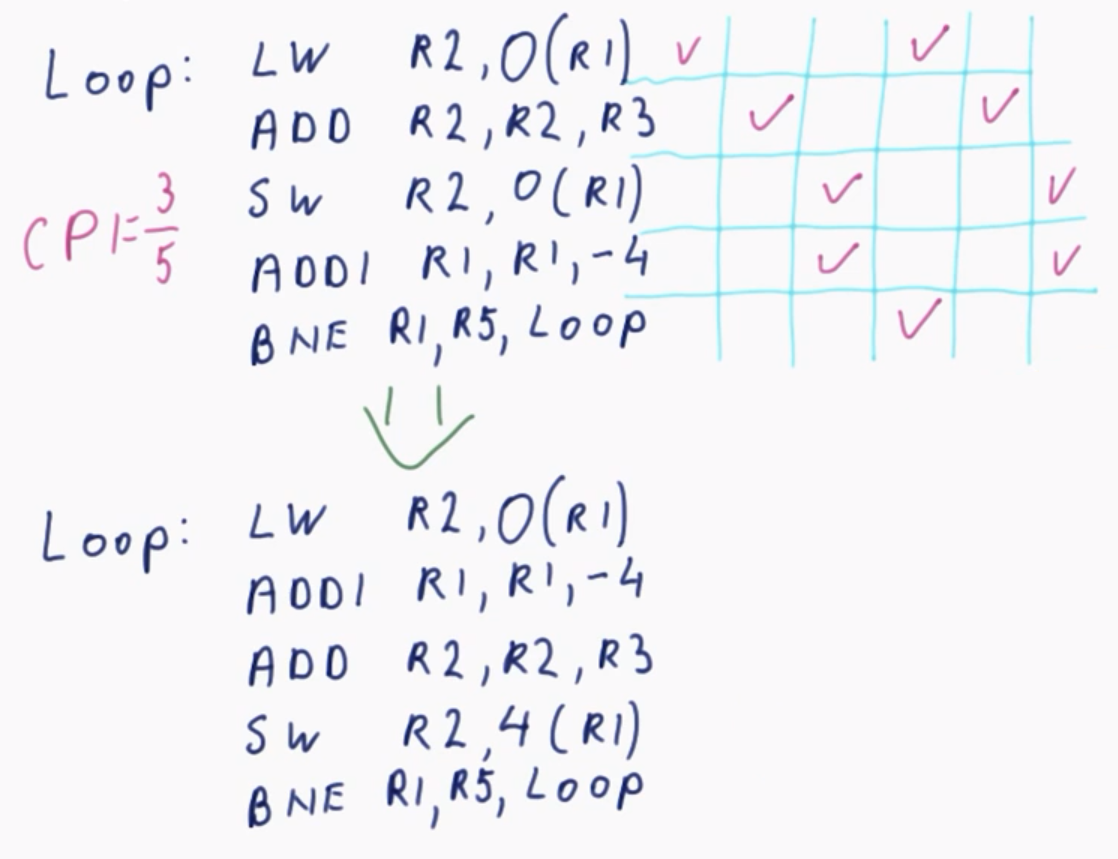 Loop: LW R2, 0(R1) ✓ ✓
ADD R2, R2, R3 ✓ ✓
SW R2, 0(R1) ✓ ✓
CPI = 3/5
ADDI R1, R1, -4 ✓ ✓
BNE R1, R5, Loop ✓
Loop: LW R2, 0(R1)
ADDI R1, R1, -4
ADD R2, R2, R3
SW R2, 4(R1)
BNE R1, R5, Loop